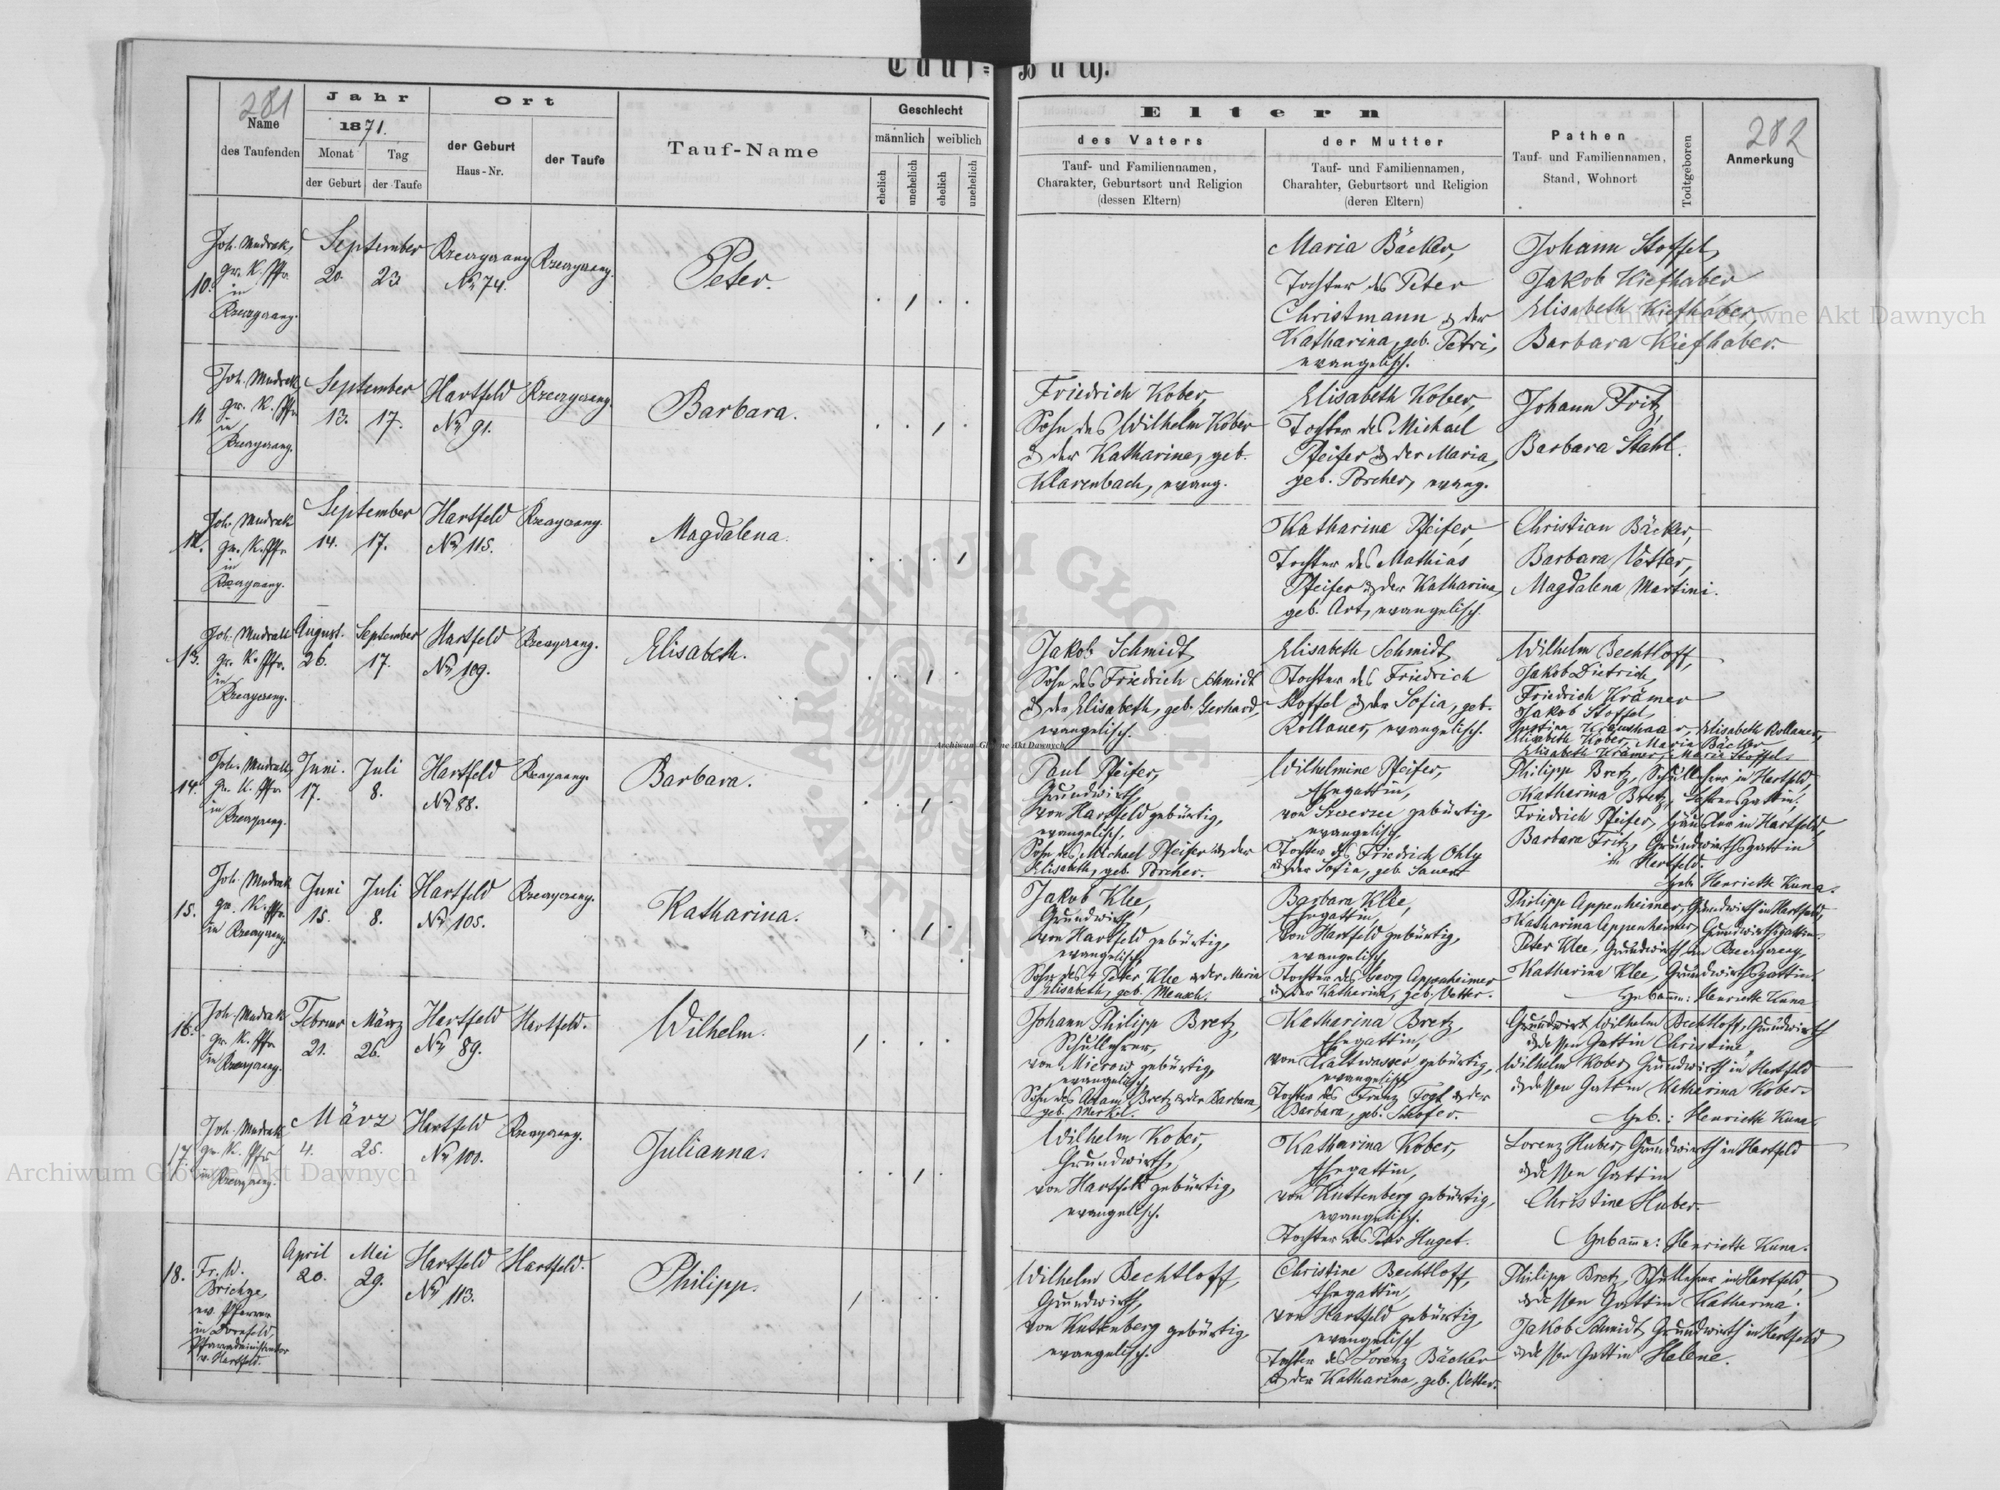 Tauf-Buch.
281
Name
des Taufenden
Jahr
1871.
Monat
Tag
der Geburt
der Taufe
Ort
der Geburt
Haus-Nr.
der Taufe
Tauf-Name
Geschlecht
männlich
weiblich
ehelich
unehelich
ehelich
unehelich
Eltern
des Vaters
Tauf- und Familiennamen,
Charakter, Geburtsort und Religion
(dessen Eltern)
der Mutter
Tauf- und Familiennamen,
Charahter, Geburtsort und Religion
(deren Eltern)
Pathen
Tauf- und Familiennamen,
Stand, Wohnort
Todtgeboren
282
Anmerkung
10.
Joh. Mudrak,
gr. K. Pfr.
in
September
20. 23.
No 74.
Peter.
Maria Bäcker,
Tochter des Peter
Christmann & der
Katharina, geb. Petri,
evangelisch.
Johann Stoffel,
Jakob Kiefhaber
Elisabeth Kiefhaber
Barbara Kiefhaber.
11.
Joh. Mudrak,
gr. K. Pfr.
in
September
13. 17.
Hartfeld
No 91.
Barbara.
Friedrich Kober,
Sohn des Wilhelm Kober
& der Katharina, geb.
Klarenbach, evang.
Elisabeth Kober,
Tochter des Michael
Pfeifer & der Maria,
geb. Porcher, evang.
Johann Fritz,
Barbara Stahl.
12.
Joh. Mudrak
gr. K. Pfr.
in
September
14. 17.
Hartfeld
No 115.
Magdalena.
Katharina Pfeifer,
Tochter des Mathias
Pfeifer & der Katharina,
geb. Art, evangelisch.
Christian Bäcker,
Barbara Vetter,
Magdalena Martini.
13.
Joh. Mudrak
gr. K. Pfr.
in
August. September
26. 17.
Hartfeld
No 109.
Elisabeth.
Jakob Schmidt,
Sohn des Friedrich Schmidt
& der Elisabeth, geb. Gerhard,
evangelisch.
Elisabeth Schmidt,
Tochter des Friedrich
Stoffel & der Sofia, geb.
Rollauer, evangelisch.
Wilhelm Bechtloff,
Jakob Dietrich,
Friedrich Krämer
Jakob Stoffel,
Elisabeth Rollauer,
Elisabeth Kober, Maria Bäcker
Elisabeth Krämer, Maria Stoffel.
14.
Joh. Mudrak,
gr. K. Pfr.
in
Juni. Juli
17. 8.
Hartfeld
No 88.
Barbara.
Paul Pfeifer,
Grundwirth,
von Hartfeld gebürtig,
evangelisch,
Sohn des Michael Pfeifer & der
Elisabeth, geb. Porcher.
Wilhelmine Pfeifer,
Ehegattin,
von gebürtig,
evangelisch,
Tochter des Friedrich Ohly
& der Sofia, geb. Sauer
Philipp Bretz, Schullehrer in Hartfeld,
Katharina Bretz, Lehrersgattin.
Friedrich Pfeifer, Häusler in Hartfeld,
Barbara Fritz, Grundwirthsgattin
in Hartfeld.
Geb. Henriette Kuna.
15.
Joh. Mudrak
gr. K. Pfr.
in
Juni Juli
15. 8.
Hartfeld
No 105.
Katharina.
Jakob Klee,
Grundwirth,
von Hartfeld gebürtig,
evangelisch,
Sohn des Peter Klee & der Maria
Elisabeth, geb. Mensch.
Barbara Klee,
Ehegattin,
von Hartfeld gebürtig,
evangelisch,
Tochter des Georg Appenheimer
& der Katharina, geb. Vetter.
Philipp Appenheimer, Grundwirth in Hartfeld,
Katharina Appenheimer, Grundwirthsgattin.
Peter Klee, Grundwirth in
Katharina Klee, Grundwirthsgattin.
Hebamme: Henriette Kuna
16.
Joh. Mudrak
gr. K. Pfr.
in
Februar März
21. 26.
Hartfeld
No 89.
Hartfeld.
Wilhelm.
Johann Philipp Bretz,
Schullehrer,
von Mierow gebürtig,
evangelisch,
Sohn des Adam Bretz & der Barbara,
geb. Merkel.
Katharina Bretz,
Ehegattin,
von Kaltwasser gebürtig,
evangelisch,
Tochter des Franz Fogt & der
Barbara, geb. Schofer.
Grundwirt Wilhelm Bechtloff, Grundwirth
& dessen Gattin Christine,
Wilhelm Kober, Grundwirth in Hartfeld
& dessen Gattin Katharina Kober.
Geb.: Henriette Kuna.
17.
Joh. Mudrak
gr. K. Pfr.
in
März
4. 25.
Hartfeld
No 100.
Julianna.
Wilhelm Kober,
Grundwirth,
von Hartfeld gebürtig,
evangelisch.
Katharina Kober,
Ehegattin,
von Kuttenberg gebürtig,
evangelisch.
Tochter des Peter Huget.
Lorenz Huber, Grundwirth in Hartfeld
& dessen Gattin
Christine Huber.
Hebamme: Henriette Kuna.
18.
Fr. W.
ev. Pfarrer
in Dornfeld,
Pfarradministrator
v. Hartfeld.
April Mai
20. 29.
Hartfeld
No 113.
Hartfeld.
Philipp.
Wilhelm Bechtloff,
Grundwirth,
von Kuttenberg gebürtig,
evangelisch.
Christine Bechtloff,
Ehegattin,
von Hartfeld gebürtig,
evangelisch
Tochter des Lorenz Bäcker
& der Katharina, geb. Vetter.
Philipp Bretz, Schullehrer in Hartfeld,
& dessen Gattin Katharina;
Jakob Schmidt, Grundwirth in Hartfeld
& dessen Gattin Helene.
Archiwum Główne Akt Dawnych
Archiwum Główne Akt Dawnych
Archiwum Główne Akt Dawnych
ARCHIWUM GŁÓWNE AKT DAWNYCH